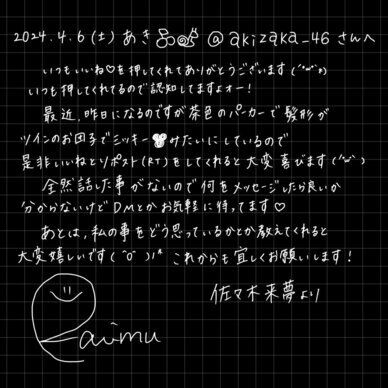 2024.4.6(土)あき @akizaka_46さんへ
いつもいいね♡を押してくれてありがとうございます(*´ω`*)
いつも押してくれてるので認知してますよォー!
最近、昨日になるのですが茶色のパーカーで髪形が
ツインのお団子でミッキーみたいにしているので
是非いいねとリポスト(RT)をしてくれると大変喜びます(*´ω`)
全然話した事がないので何をメッセージしたら良いか
分からないけどDMとかお気軽に待ってます♡
あとは、私の事をどう思っているかとか教えてくれると
大変嬉しいです(*ˊᵕˋ)!* これからも宜しくお願いします!
佐々木来夢より
Raimu